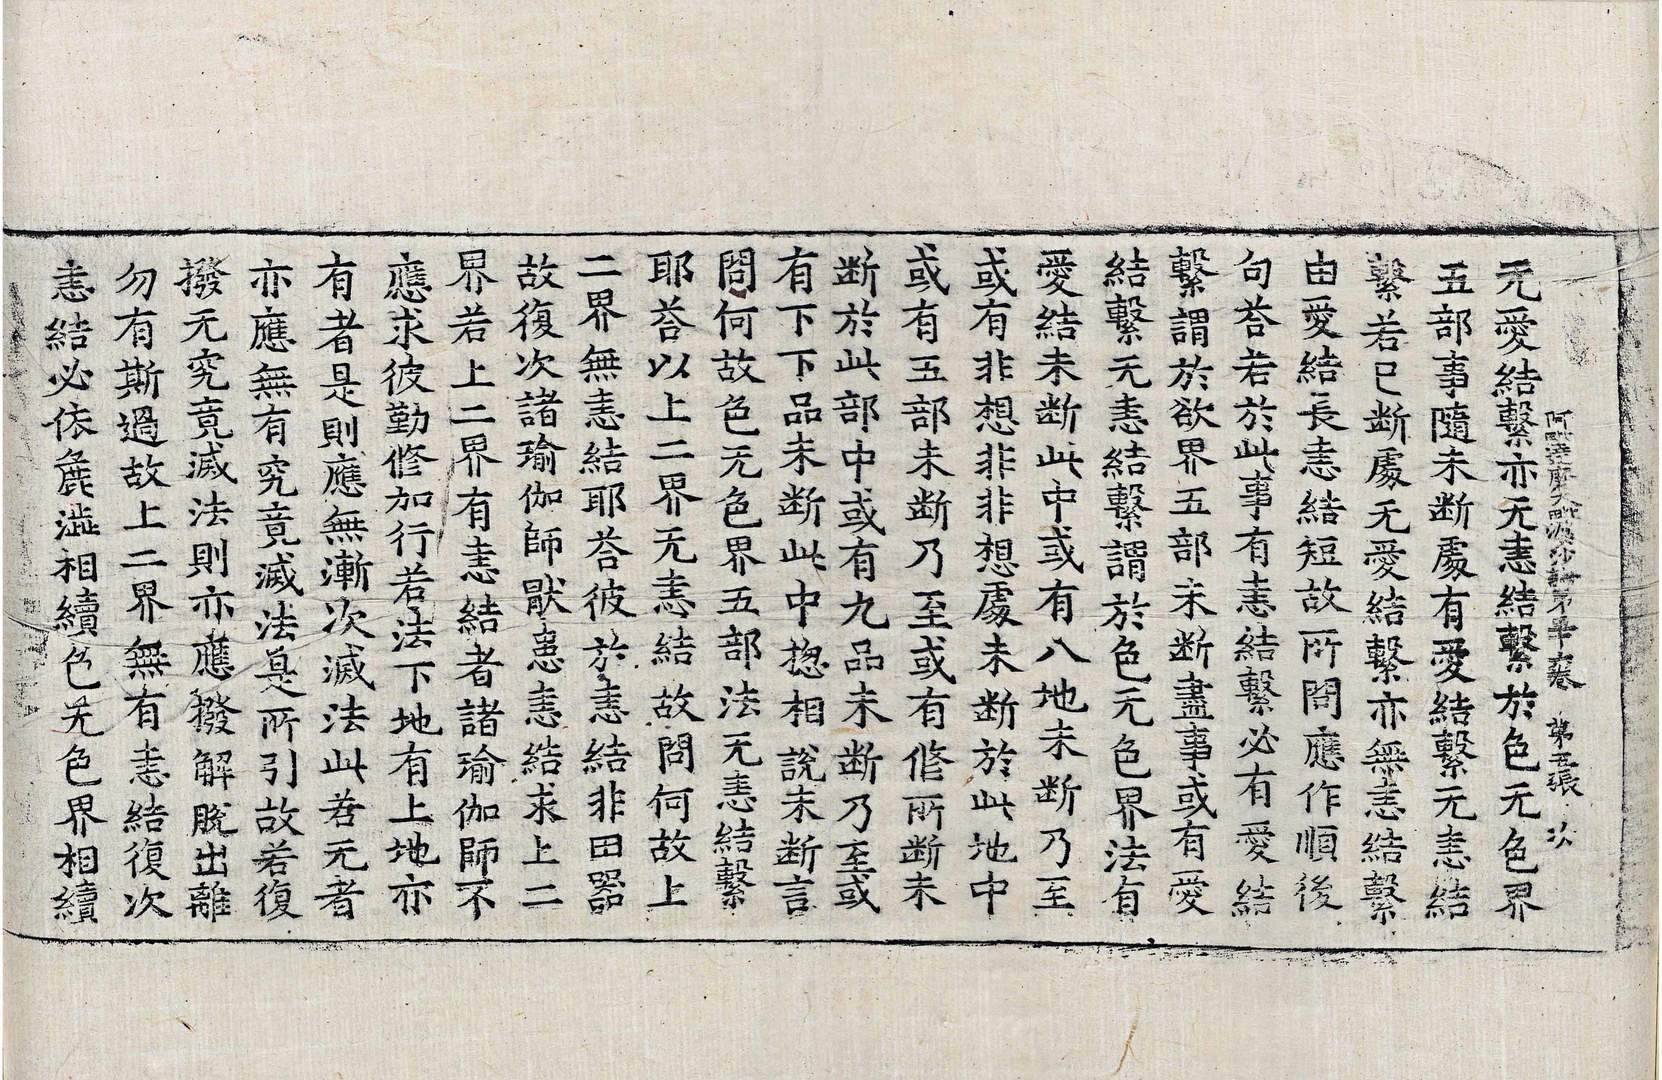 阿毗達磨大毗婆沙論第卷 第五張 次
无愛結繫亦无恚結繫於色无色界
五部事隨未断處有愛結繫无恚結
繫若已断處无愛結繫亦無恚結繫
由愛結長恚結短故所問應作順後
句荅若於此事有恚結繫必有愛結
繫謂於欲界五部未断盡事或有愛
結繫无恚結繫謂於色无色界法有
愛結未断此中或有八地未断乃至
或有非想非非想處未断於此地中
或有五部未断乃至或有修所断未
断於此部中或有九品未断乃至或
有下下品未断此中揔相說未断言
問何故色无色界五部法无恚結繫
耶荅以上二界无恚結故問何故上
二界無恚結耶荅彼於恚結非田器
故復次諸瑜伽師猒患恚結求上二
界若上二界有恚結者諸瑜伽師不
應求彼勤修加行若法下地有上地亦
有者是則應無漸次滅法此若无者
亦應無有究竟滅法是所引故若復
撥无究竟滅法則亦應撥解脫出離
勿有斯過故上二界無有恚結復次
恚結必依麁澁相續色无色界相續